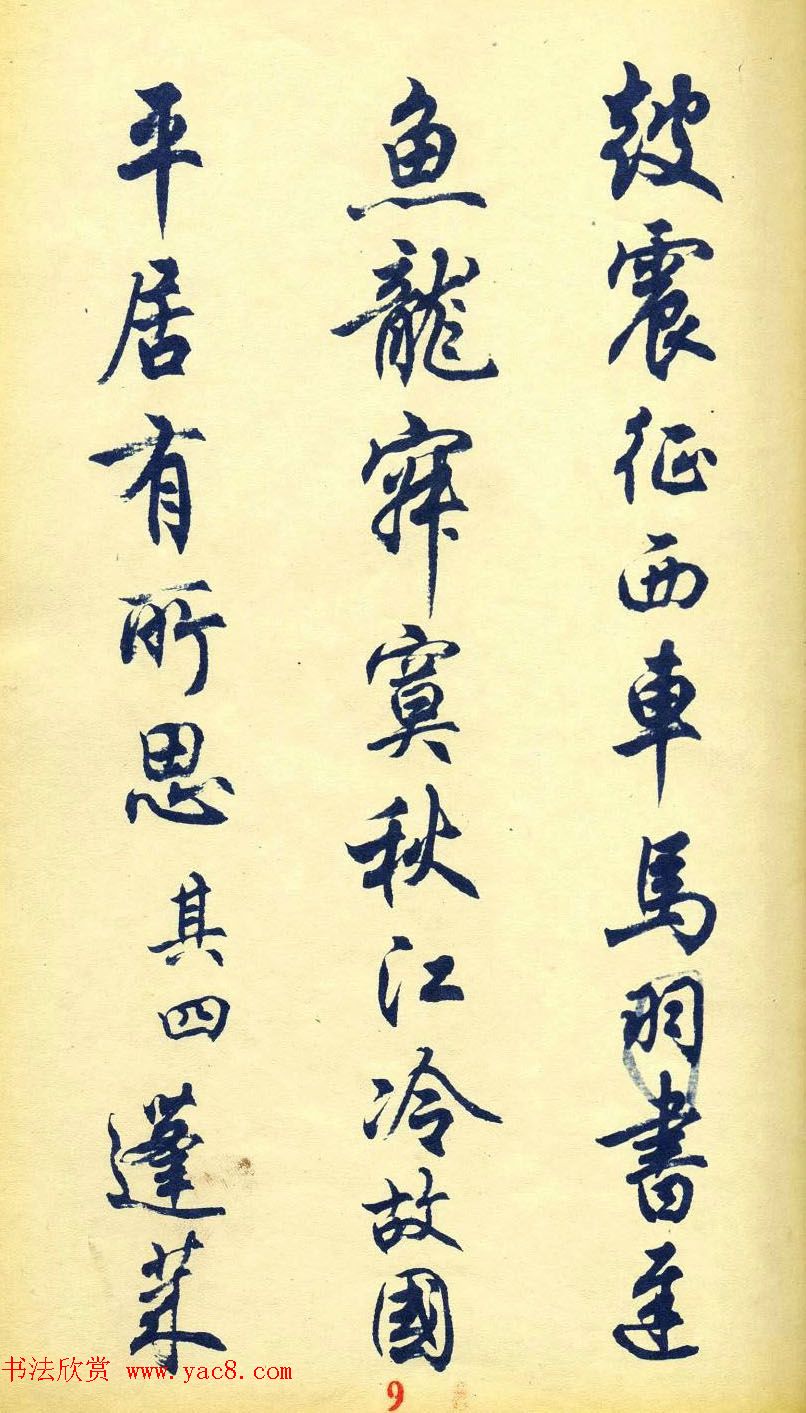 皷震征西車馬羽書遲
魚龍寂寞秋江冷故國
平居有所思 其四 蓬萊
书法欣赏 www.yac8.com
9